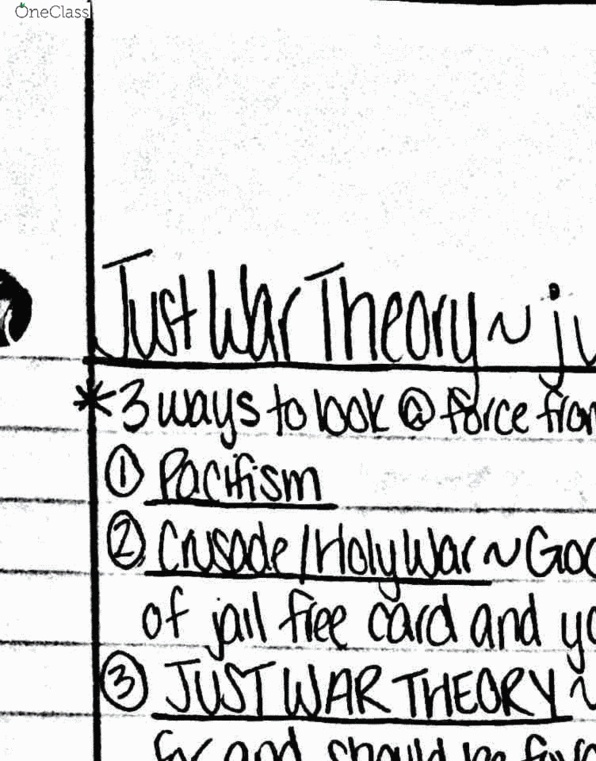 OneClass
Just War Theory ~ ju
*3 ways to look @ force from
① Pacifism
② Crusade/Holy War ~ God
of jail free card and yo
③ JUST WAR THEORY ~
for and should be